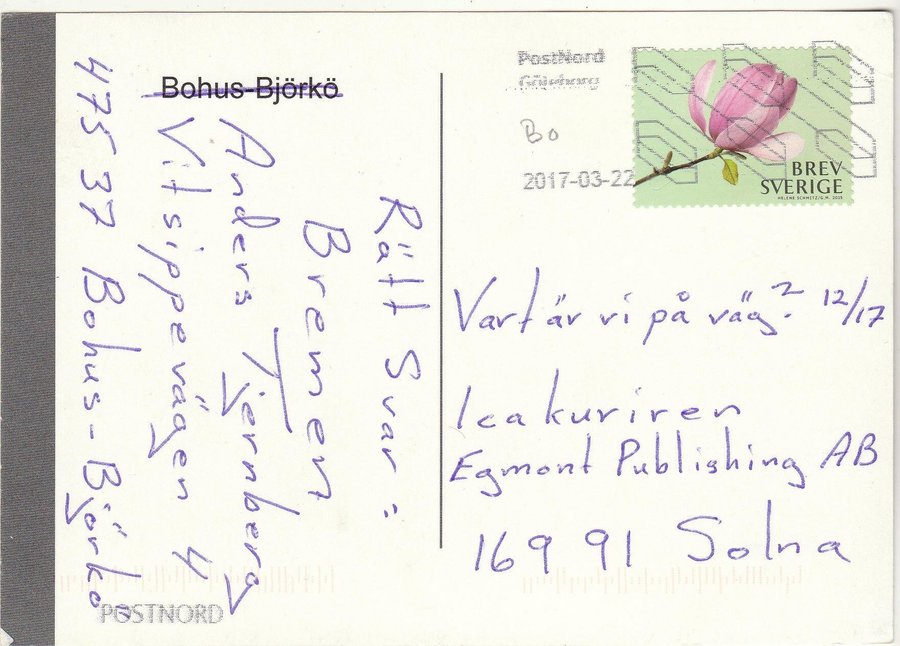 Bohus-Björkö
Rätt Svar:
Bremen
Anders Tjernberg
Vitsippevägen 4
475 37 Bohus-Björkö
PostNord
Göteborg
Bo
2017-03-22
BREV
SVERIGE
HELENE SCHMITZ/G.M. 2015
Vart är vi på väg? 12/17
Icakuriren
Egmont Publishing AB
169 91 Solna
POSTNORD